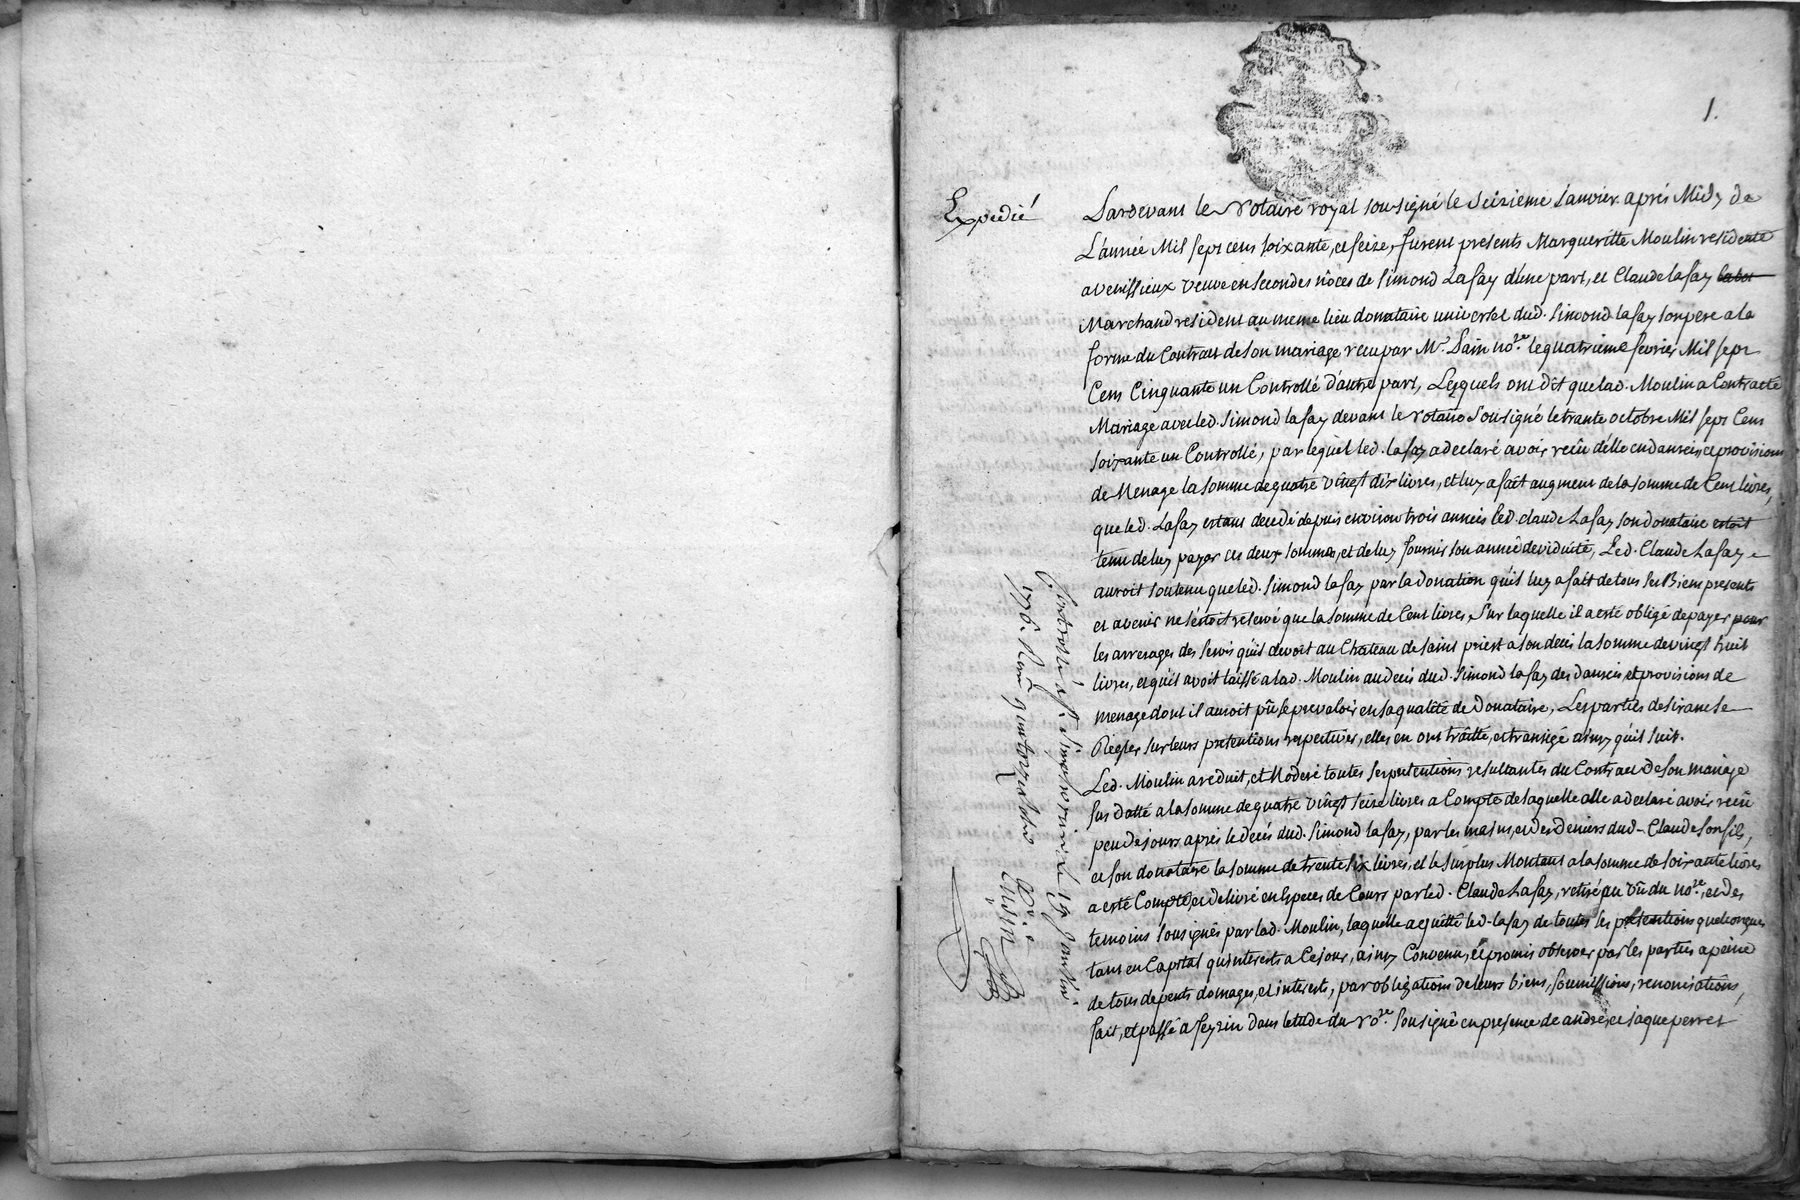 1.
Expedié
Pardevant le Notaire royal sousigné le Seizieme Janvier aprés Midy de
L'année Mil sept cens soixante, et seize, furent presents Margueritte Moulin residente
a venissieux veuve en secondes nôces de Simond Lafay d'une part, et Claude lafay
Marchand resident au meme lieu donataire universel dud. Simond lafay son pere a la
forme du Contract de son mariage recu par Me. no.re le quatrieme fevrier Mil sept
Cens Cinquante un Controllé d'autre part, Lesquels ont dit que lad. Moulin a Contracté
Mariage avec led. Simond lafay devant le Notaire Sousigné le trante octobre Mil sept Cens
soixante un Controllé, par lequel led. lafay a declaré avoir reçû d'elle en danrées, et provisions
de Menage la somme de quatre vingt dix livres, et luy a fait augment de la somme de Cent livres,
que led. Lafay estant decedé depuis environ trois années led. claude Lafay son donataire estoit
tenu de luy payer ces deux sommes, et de luy fournir son année de viduité, Led. Claude Lafay
auroit soutenu que led. Simond lafay par la donation qu'il luy a fait de tous ses Biens presents
et avenir ne s'estoit reservé que la somme de Cent livres, sur laquelle il a esté obligé de payer pour
les arrerages des servis qu'il devoit au Chateau de saint priest a son decés la somme de vingt huit
livres, et qu'il avoit laissé a lad. Moulin au decés dud. Simond lafay des danrées et provisions de
menage dont il auroit pû se prevaloir en sa qualité de Donataire, Les parties desirant se
Regler sur leurs pretentions respectives, elles en ont traitté, et transigé ainsy qu'il suit.
Led. Moulin a reduit, et Moderé toutes ses pretentions resultantes du Contract de son mariage
sus datté a la somme de quatre vingt seize livres a Compte de laquelle elle a declaré avoir reçû
peu de jours aprés le decés dud. Simond lafay, par les mains, et des deniers dud. Claude son fils,
et son donataire la somme de trente six livres, et le surplus Montant a la somme de soixante livres
a esté Compté, et delivré en Especes de Cours par led. Claude Lafay, retiré au vû du no.re, et des
temoins sousignés par lad. Moulin, laquelle a quitté led. lafay de toutes ses pretentions quelconques
tant en Capital qu'interests a Ce jour, ainsy Convenu, et promis observer par les parties a peine
de tous depents domages, et interests, par obligations de leurs biens, soumissions, renonciations,
fait, et passé a feyzin dans l'etude du No.re sousigné en presence de andré, et jaque perret
Controllé a St. Simphorien le 19 Janvier
1776. Reçû quatorze sols